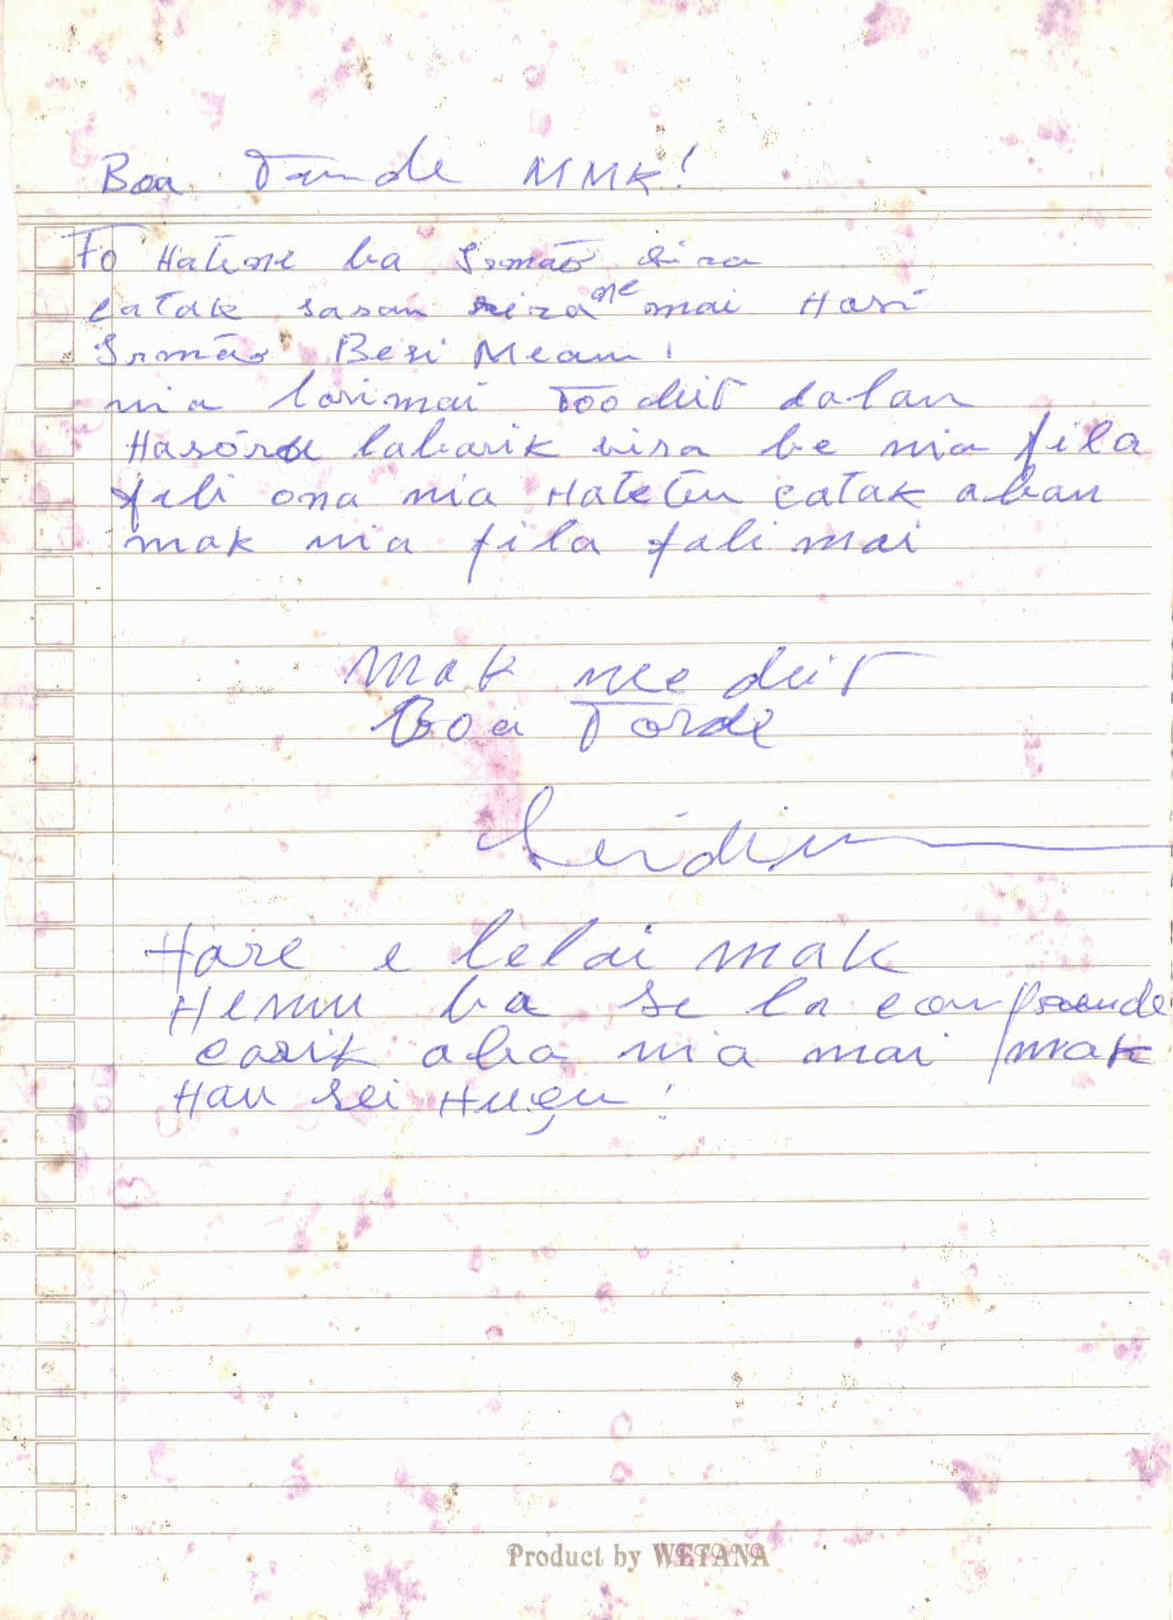 Boa Tarde MMK!
Fo Hatene ba Irmão sira
catak sasan sira ne mai Hosi
Irmão Besi Mean!
nia lori mai Too deit dalan
Hasóru labarik sira be nia fila
fali ona nia Hatetén catak aban
mak nia fila fali mai
Mak nee deit
Boa Tarde
Hare e lelai mak
Hemu ba se la confrende
carik aba nia mai mak
Hau sei Huçu!
Product by WETANA